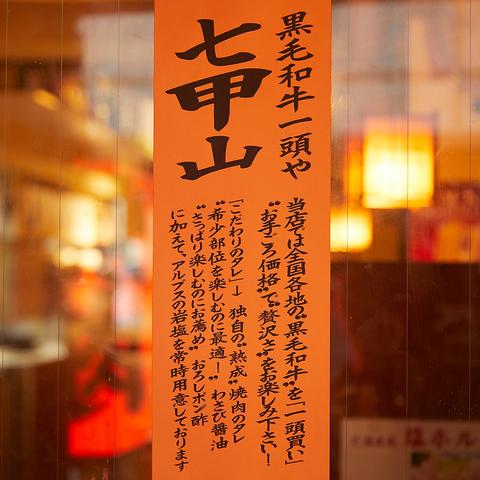 黒毛和牛一頭や
七甲山
当店では全国各地の“黒毛和牛”を「一頭買い」
“お手ごろ価格”で“贅沢さ”をお楽しみ下さい！
「こだわりのタレ」→ 独自の“熟成”焼肉のタレ
“希少部位を楽しむのに最適！”わさび醤油
“さっぱり楽しむのにお薦め”おろしポン酢
に加えて、アルプスの岩塩を常時用意しております
塩ホル